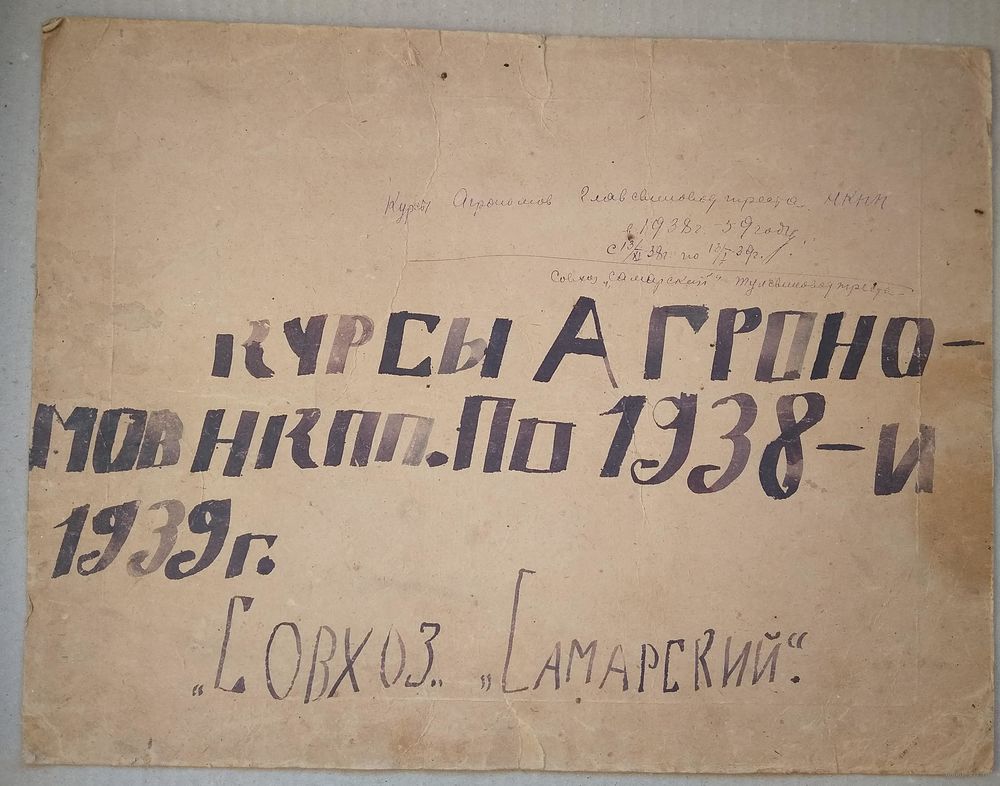 Курсы Агрономов Главсвиноводтреста НКПП
в 1938г. 39 году
с 13/XI 38г. по 13/I 39г.
Совхоз „Самарский“ Тулсвиноводтреста
КУРСЫ АГРОНО-
МОВ НКПП. ПО 1938-И
1939 г.
„СОВХОЗ„ „САМАРСКИЙ“.